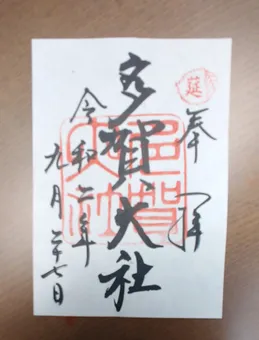 奉拝
延
多賀大社
令和二年
九月二十七日